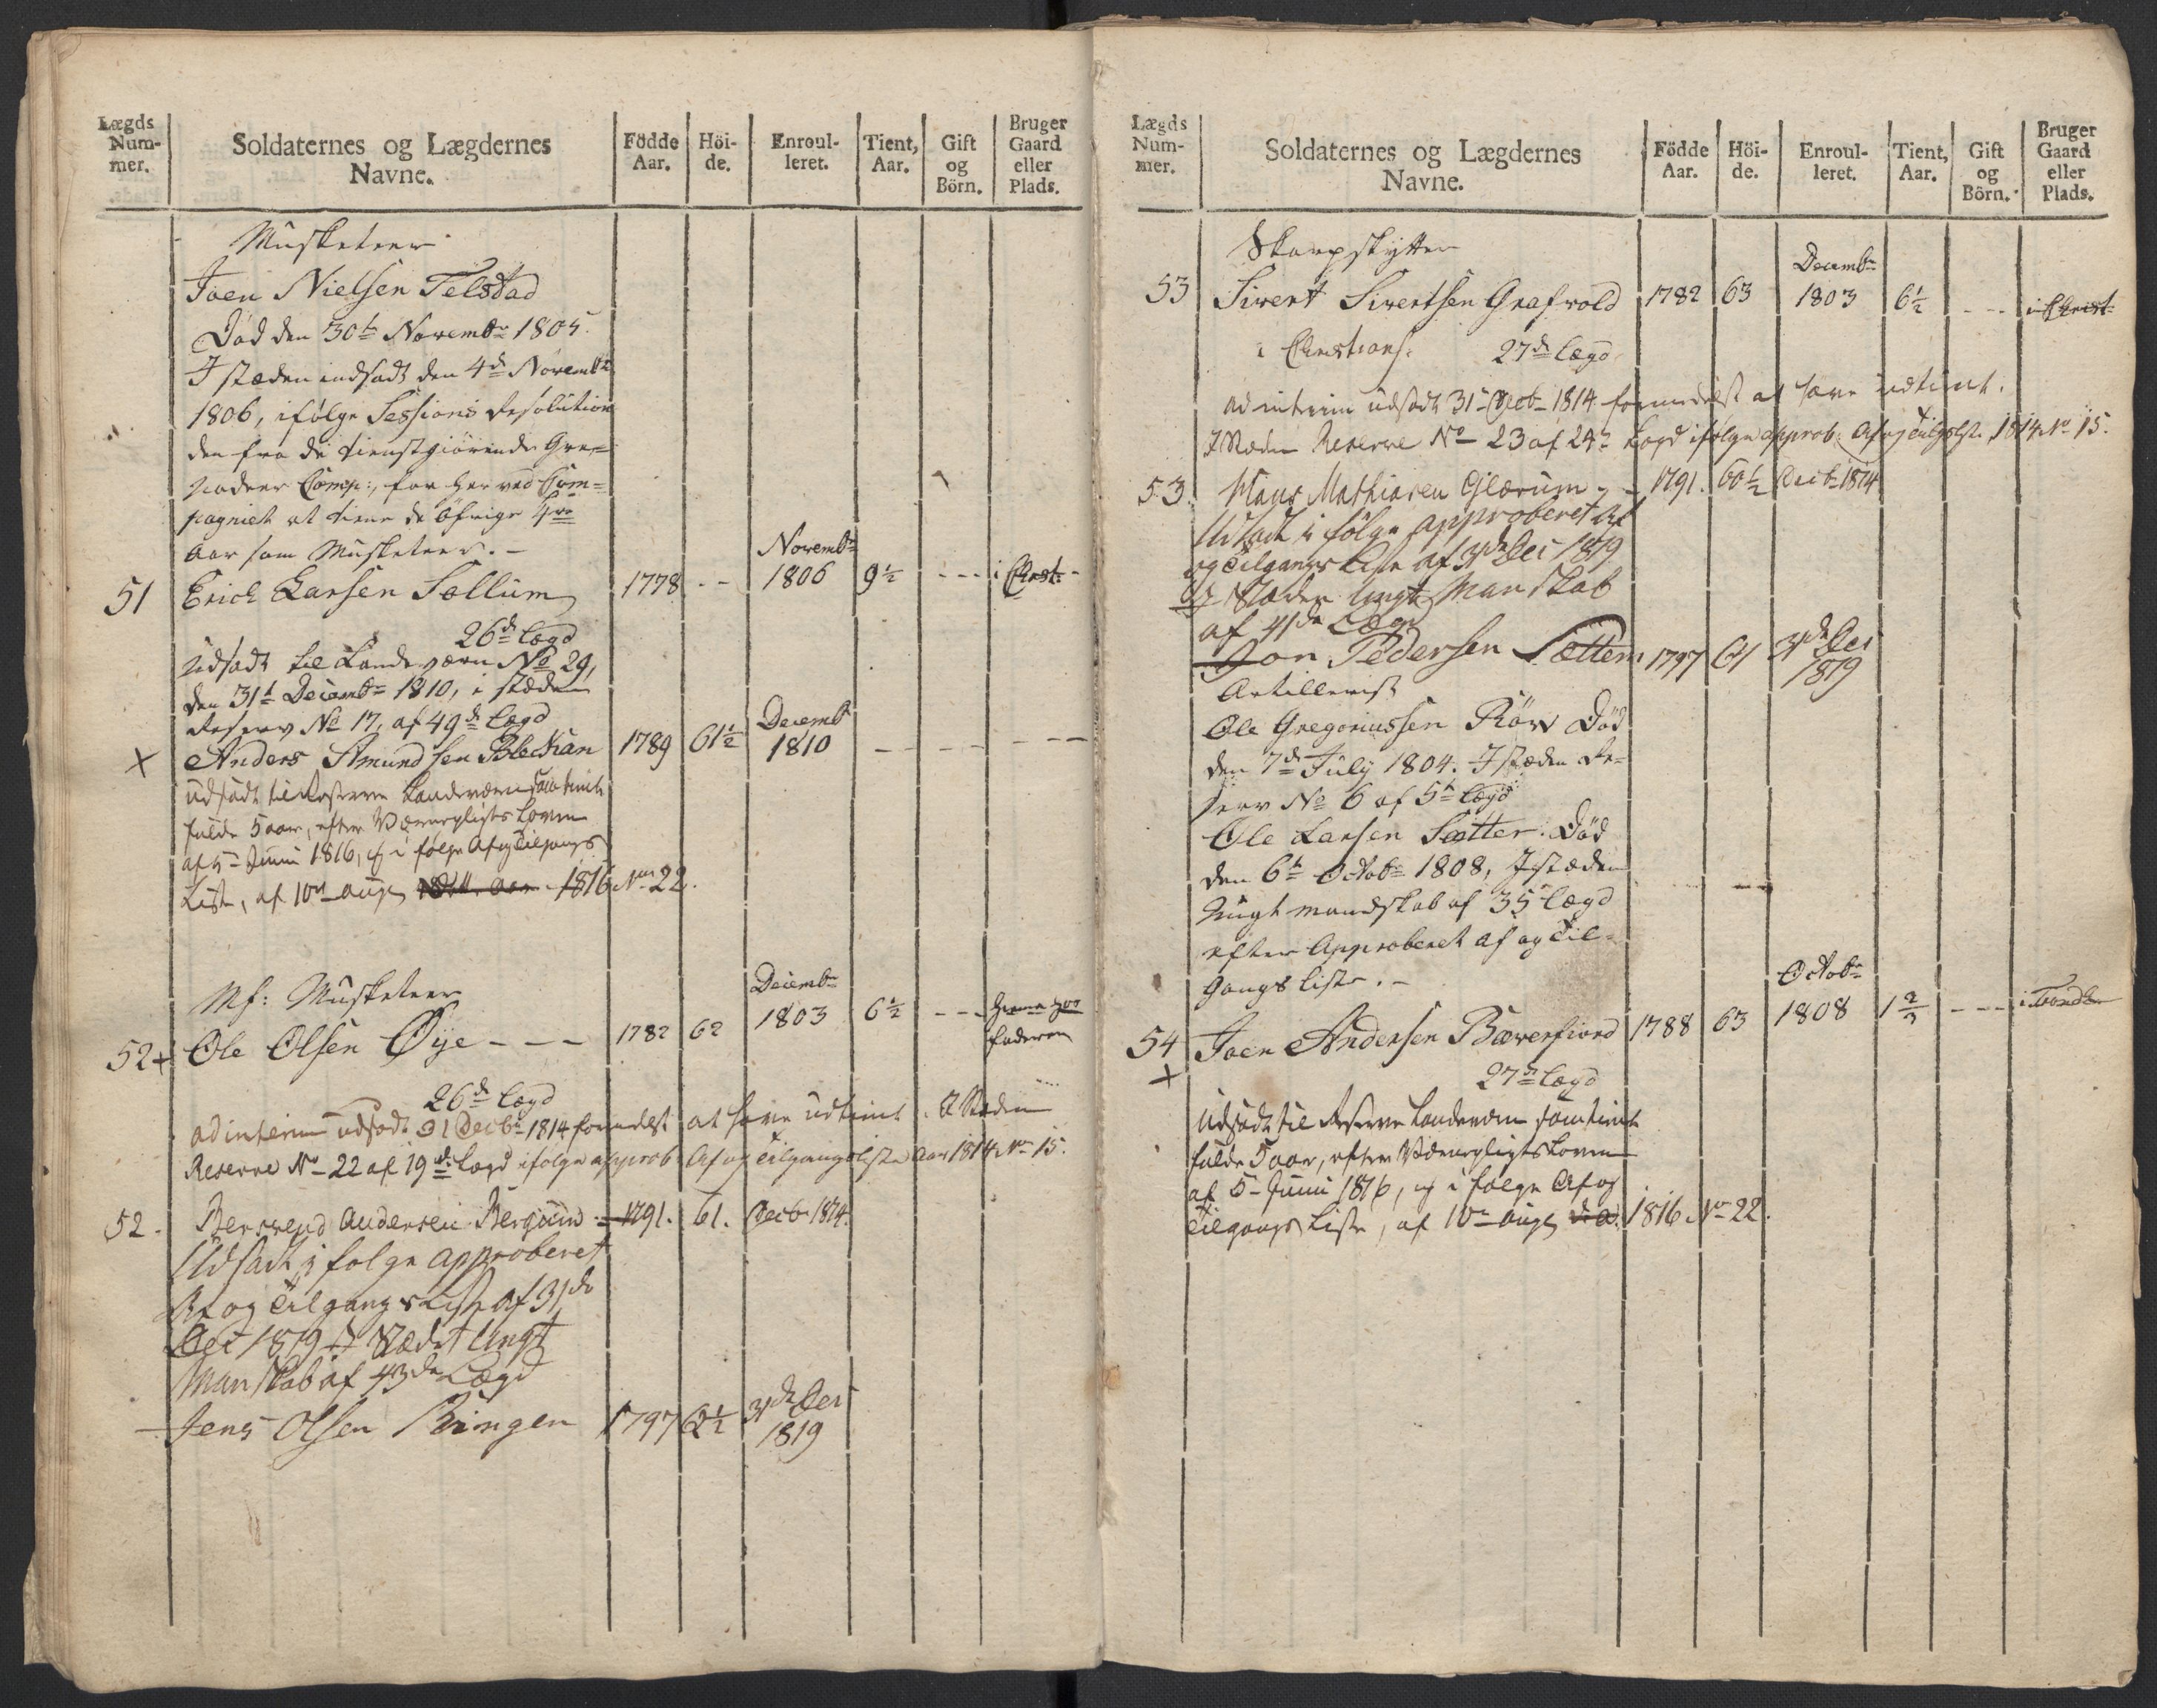 Lægds Num- mer.
Soldaternes og Lægdernes Navne.
Födde Aar.
Höi- de.
Enroul- leret.
Tient, Aar.
Gift og Börn.
Bruger Gaard eller Plads.
Musketeer
Joen Nielsen Telstad
Död den 30te Novembr 1805.
I stæden indsadt den 4de Novembr
1806, ifölge Sessions Resolution
den fra de tienstgiörende Gre=
nadeer Comp:, for her ved Com=
pagniet at tiene de öfrige 4re
Aar som Musketeer. -
51 Erich Larsen Sollum 1778 -- Novembr 1806 9½ --- i Christ:
26de Lægd
Udsadt til Landeværn No 29,
den 31te Decembr 1810, i stæden
Reserv No 17, af 49de Lægd
x Anders Amundsen Bleckan 1789 61½ Decemb 1810 - - - - - -
udsadt til Reserve Landeværn som tient
fulde 5 aar, efter Værnepligts Loven
af 5te Junii 1816, og i fölge Af og Tilgangs
Liste, af 10de Aug 1816 No 22.
Mf: Musketeer
52 + Ole Olsen Öye - - - 1782 62 Decembr 1803 6½ --- hiemme hos faderen
26de Lægd
ad interim udsadt 31 Decbr 1814 formedelst at have udtient. I Stæden
Reserve No 22 af 19de Lægd ifölge approb. Af og Tilgangsliste Aar 1814 No 15.
52. Berswend Andersen Bergum 1791. 61. Decbr 1814.
Udsadt i fölge approberet
Af og Tilgangs Liste af 31de
Dec 1819 I Stædet Ungt
Manskab af 43de Lægd
Jens Olsen Ringen 1797 62½ 31de Dec 1819
Lægds Num- mer.
Soldaternes og Lægdernes Navne.
Födde Aar.
Höi- de.
Enroul- leret.
Tient, Aar.
Gift og Börn.
Bruger Gaard eller Plads.
Skarpskytter
53 Sivert Sivertsen Grafvold 1782 63 Decembr 1803 6½ --- i Christ
i Christians: 27de Lægd
ad interim udsadt 31te Decbr 1814 formedelst at have udtient.
I Stæden Reserve No 23 af 24de Lægd ifölge approb. Af og Tilgslste 1814 No 15.
53. Hans Mathiasen Glærum - 1791. 60½ Decbr 1814
Udsadt i fölge approberet Af
og Tilgangs Liste af 31de Dec 1819
I Stæden Ungt Manskab
af 41de Lægd
Jon Pedersen Settem 1797 61 31de Dec 1819
Artillerist
Ole Gregoriussen Röv Död
den 7de July 1804. I stæden Re=
serv No 6 af 5te Lægd
Ole Larsen Sætter. Död
den 6te Octobr 1808, I stæden
Ungt mandskab af 35te Lægd
efter Approberet af og Til=
gangs Liste. -
54 Joen Andersen Bæverfiord 1788 63 Octobr 1808 1⅔ ---
x 27de Lægd
Udsadt til Reserve Landeværn som tient
fulde 5 aar, efter Værnepligts Loven
af 5te Junii 1816, og i fölge Af og
Tilgangs Liste, af 10de Aug 1816 No 22.